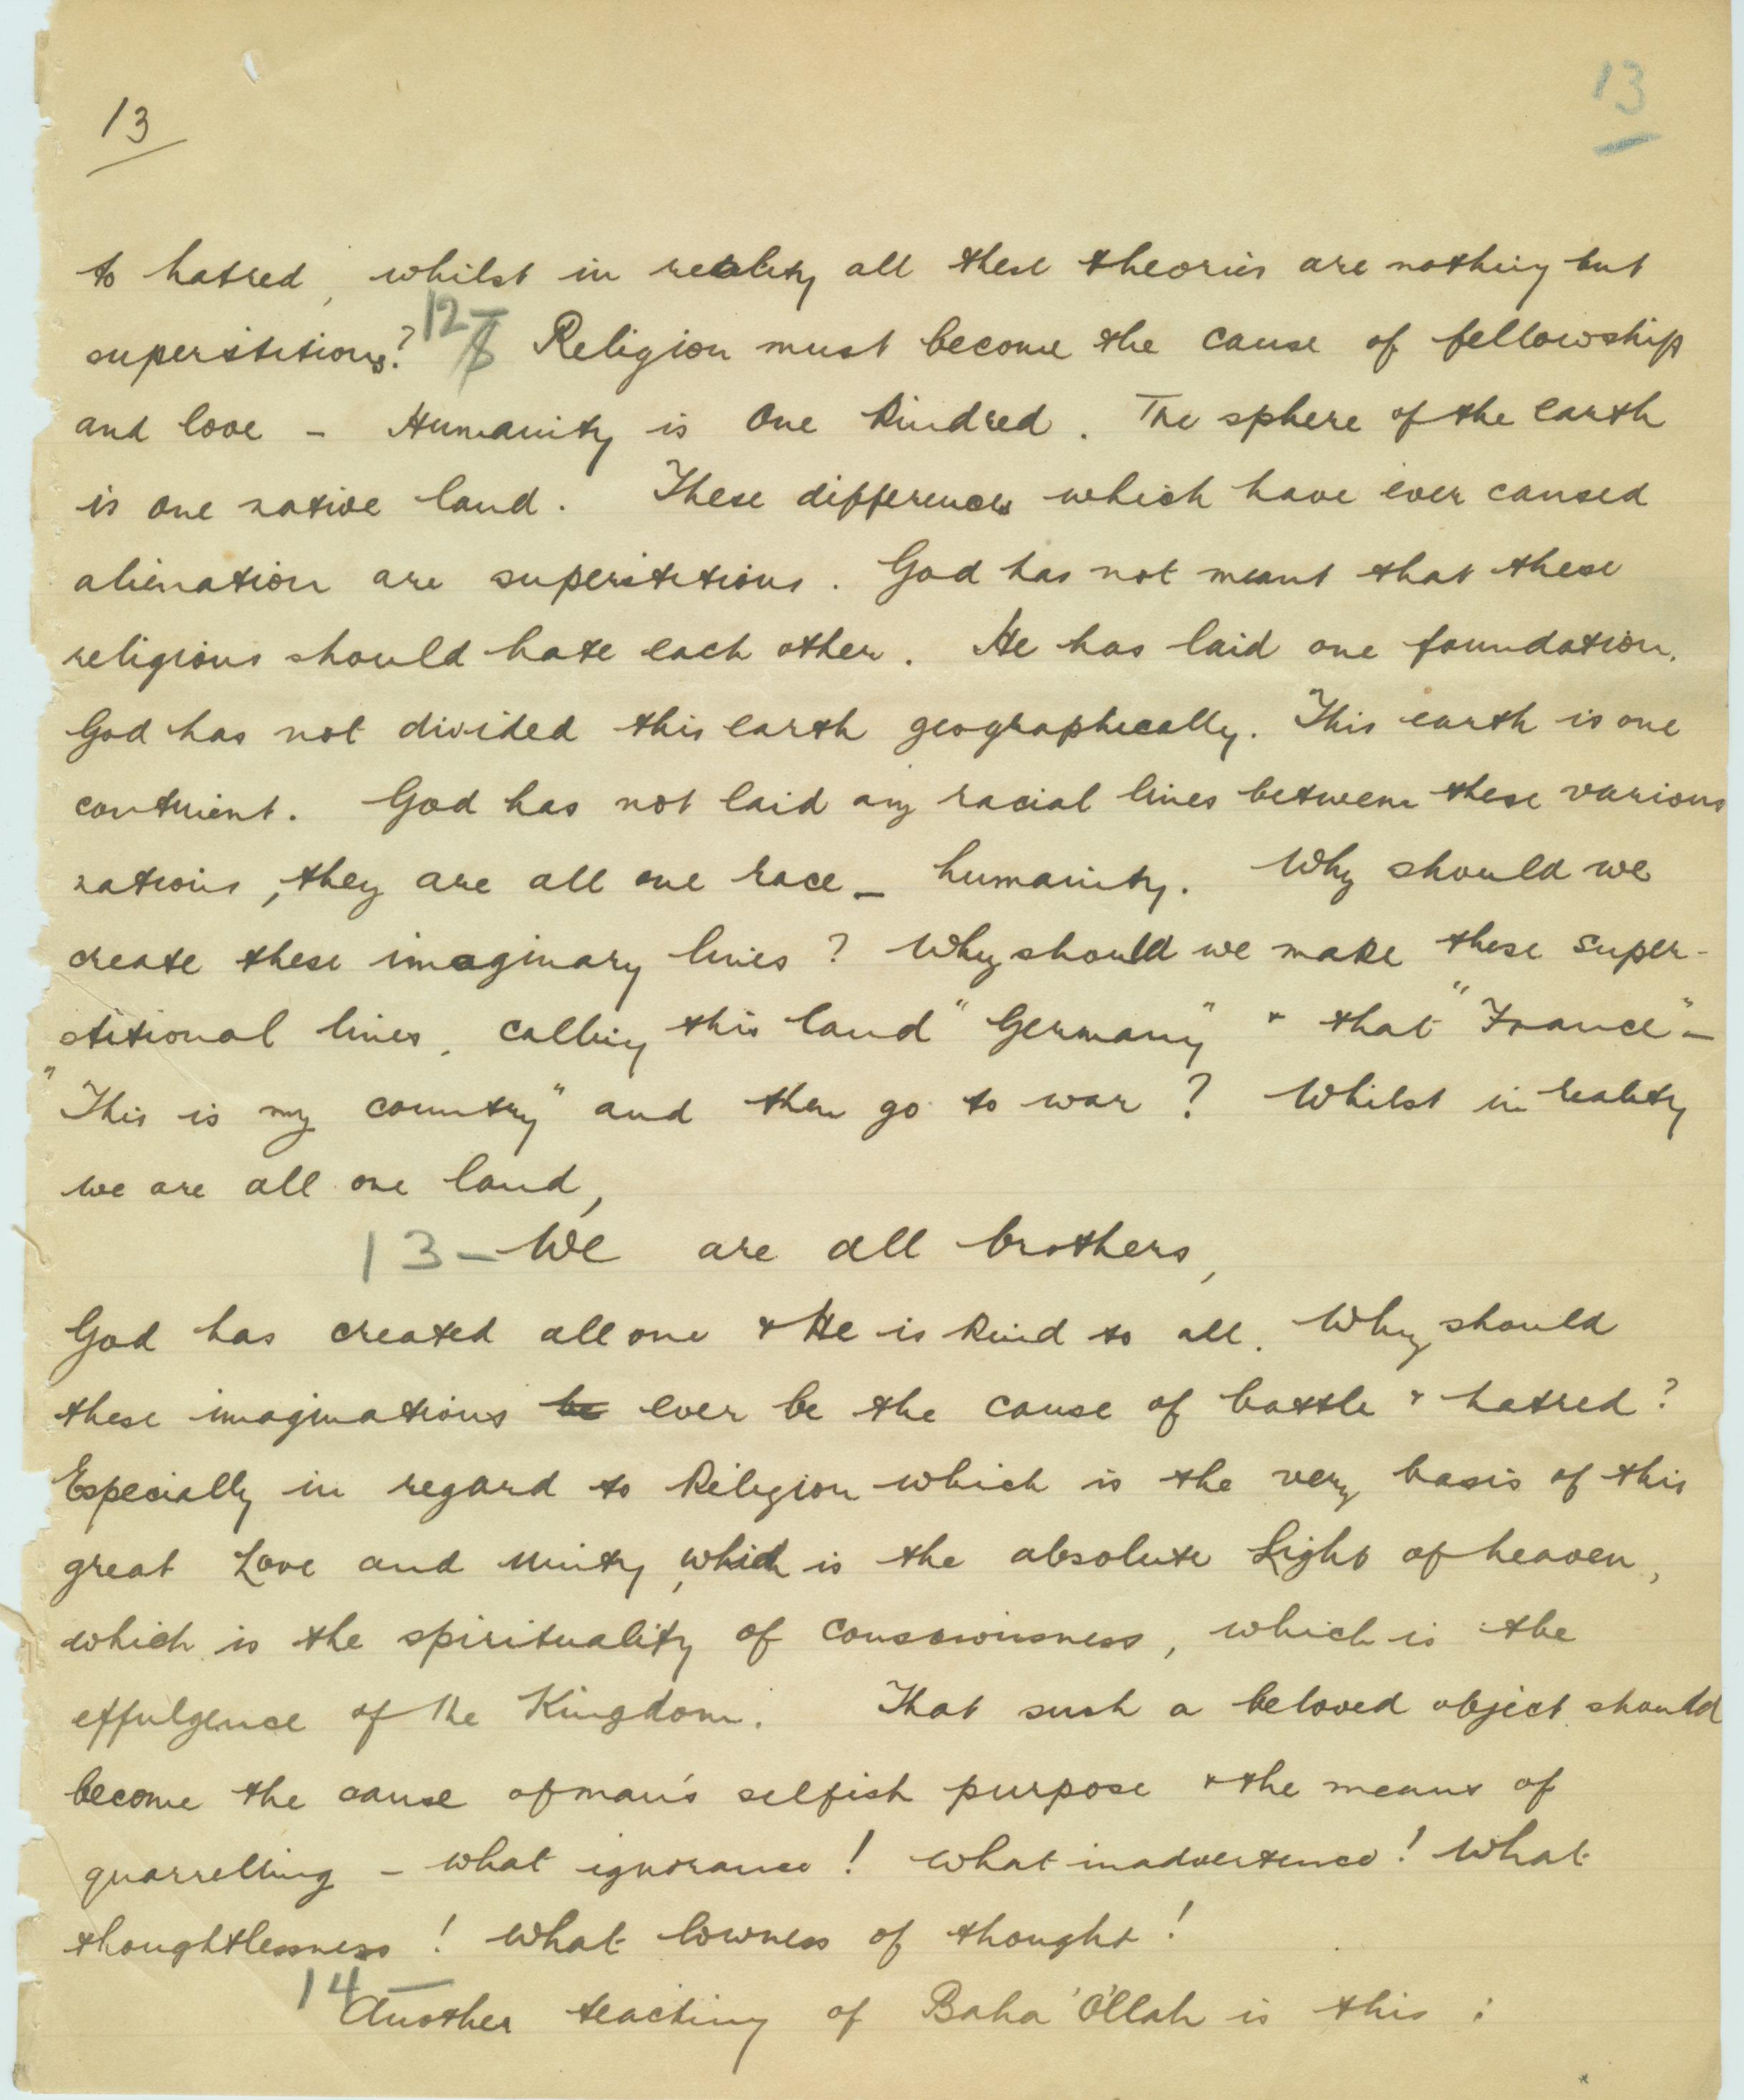 13 13
to hatred, whilst in reality all these theories are nothing but
superstitions? 12— Religion must become the cause of fellowship
and love – Humanity is One Kindred. The sphere of the earth
is one native land. These differences which have ever caused
alienation are superstitions. God has not meant that these
religions should hate each other. He has laid one foundation.
God has not divided this earth geographically. This earth is one
continent. God has not laid any racial lines between these various
nations, they are all one race – humanity. Why should we
create these imaginary lines? Why should we make these super-
stitional lines, calling this land "Germany" & that "France" –
"This is my country" and then go to war? Whilst in reality
we are all one land,
13 – We are all brothers,
God has created all one & He is kind to all. Why should
these imaginations be ever be the cause of battle & hatred?
Especially in regard to Religion which is the very basis of this
great Love and Unity, which is the absolute Light of heaven,
which is the spirituality of consciousness, which is the
effulgence of the Kingdom. That such a beloved object should
become the cause of man's selfish purpose & the means of
quarrelling – what ignorance! what inadvertence! What
thoughtlessness! what lowness of thought!
14 — Another teaching of Baha'O'llah is this: